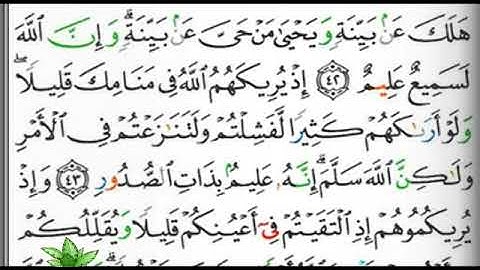 هَلَكَ عَنۢ بَيِّنَةٖ وَيَحۡيَىٰ مَنۡ حَيَّ عَنۢ بَيِّنَةٖۗ وَإِنَّ ٱللَّهَ
لَسَمِيعٌ عَلِيمٌ ٤٢ إِذۡ يُرِيكَهُمُ ٱللَّهُ فِي مَنَامِكَ قَلِيلٗاۖ
وَلَوۡ أَرَىٰكَهُمۡ كَثِيرٗا لَّفَشِلۡتُمۡ وَلَتَنَٰزَعۡتُمۡ فِي ٱلۡأَمۡرِ
وَلَٰكِنَّ ٱللَّهَ سَلَّمَۚ إِنَّهُۥ عَلِيمُۢ بِذَاتِ ٱلصُّدُورِ ٤٣ وَإِذۡ
يُرِيكُمُوهُمۡ إِذِ ٱلۡتَقَيۡتُمۡ فِيٓ أَعۡيُنِكُمۡ قَلِيلٗا وَيُقَلِّلُكُمۡ